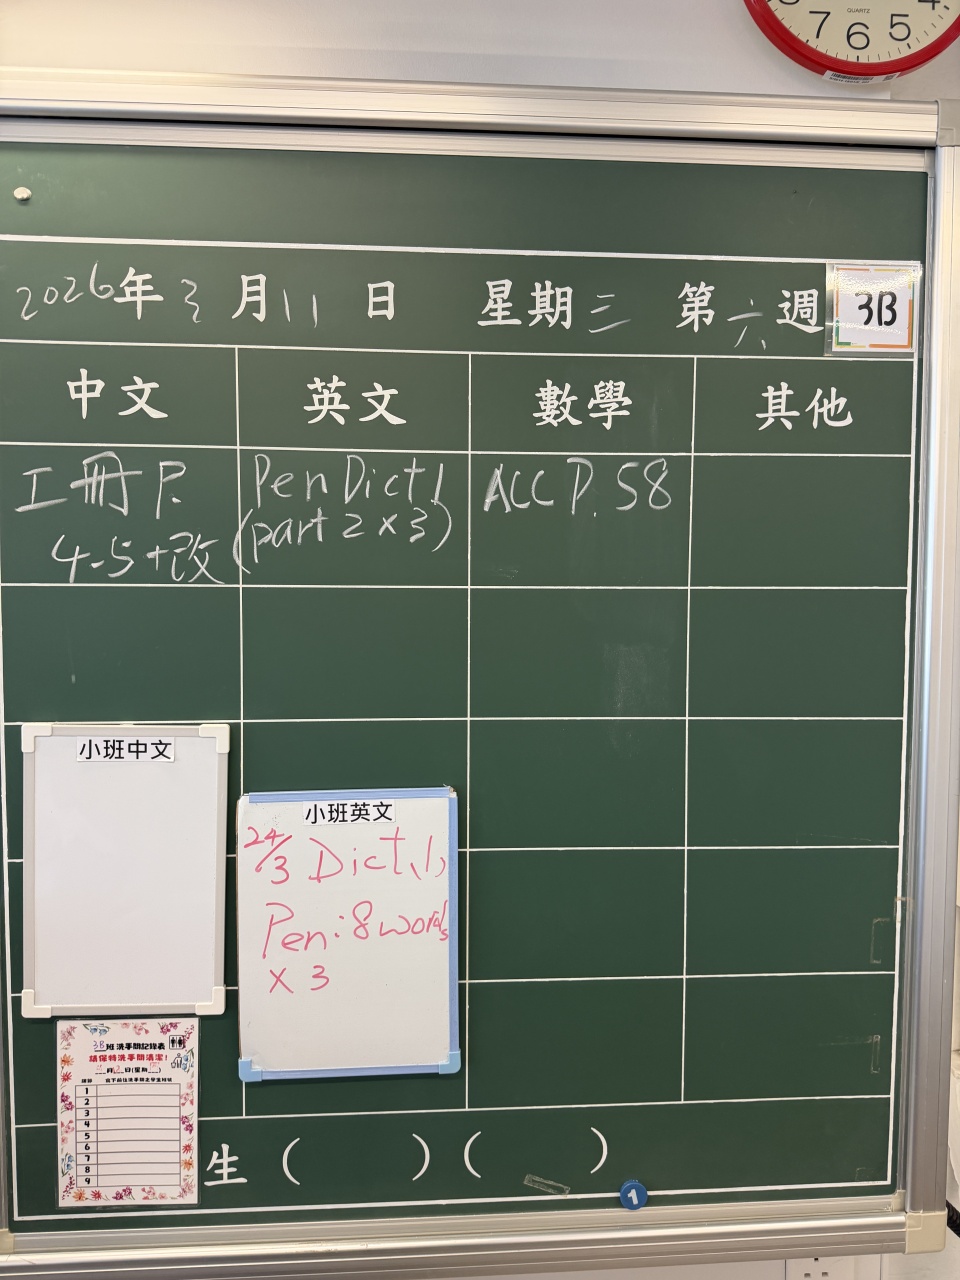 QUARTZ
7 6 5 4
2026年3月11日 星期三 第六週 3B
中文 英文 數學 其他
工冊P.
4-5+改
Pen Dict 1
(part 2 x 3)
ACC P. 58
小班中文
小班英文
24/3 Dict.1,
Pen: 8 words
x 3
3B班洗手間記錄表
請保持洗手間清潔！
月 日(星期 )
1
2
3
4
5
6
7
8
9
生 ( ) ( )
1